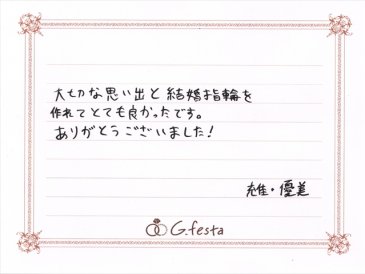 大切な思い出と結婚指輪を
作れてとても良かったです。
ありがとうございました!
雄・優美
G.festa